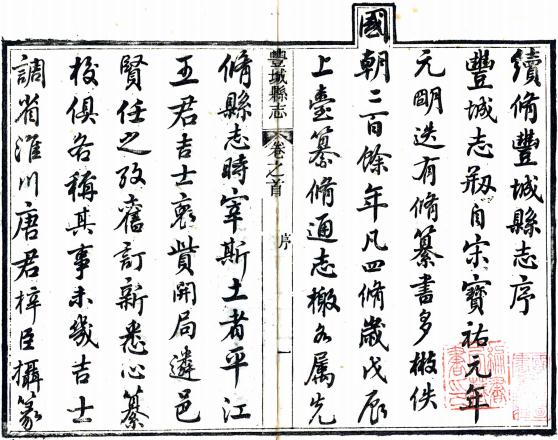 續脩豐城縣志序
豐城志剏自宋寶祐元年
元明迭有脩纂書多散佚
國朝二百餘年凡四脩歲戊辰
上臺纂脩通志檄各屬先
豐城縣志 卷之首 序 一
脩縣志時宰斯土者平江
王君吉士裒貲開局遴邑
賢任之攷舊訂新悉心纂
校俱各稱其事未幾吉士
調省淮川唐君梓臣攝篆